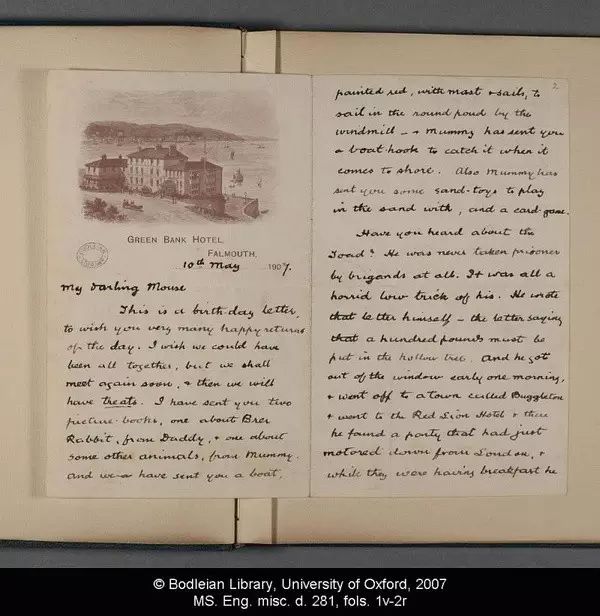 GREEN BANK HOTEL,
FALMOUTH,
10th May 1907.
My Darling Mouse
This is a birthday letter,
to wish you very many happy returns
of the day. I wish we could have
been all together, but we shall
meet again soon, & then we will
have treats. I have sent you two
picture-books, one about Brer
Rabbit, from Daddy, & one about
some other animals, from Mummy.
And we have sent you a boat,
2
painted red, with mast & sails, to
sail in the round pond by the
windmill — & Mummy has sent you
a boat-hook to catch it when it
comes to shore. Also Mummy has
sent you some sand-toys to play
in the sand with, and a card-game.
Have you heard about the
Toad? He was never taken prisoner
by brigands at all. It was all a
horrid low trick of his. He wrote
that letter himself — the letter saying
that a hundred pounds must be
put in the hollow tree. And he got
out of the window early one morning,
& went off to a town called Buggleton
& went to the Red Lion Hotel & there
he found a party that had just
motored down from London, &
while they were having breakfast he
© Bodleian Library, University of Oxford, 2007
MS. Eng. misc. d. 281, fols. 1v-2r